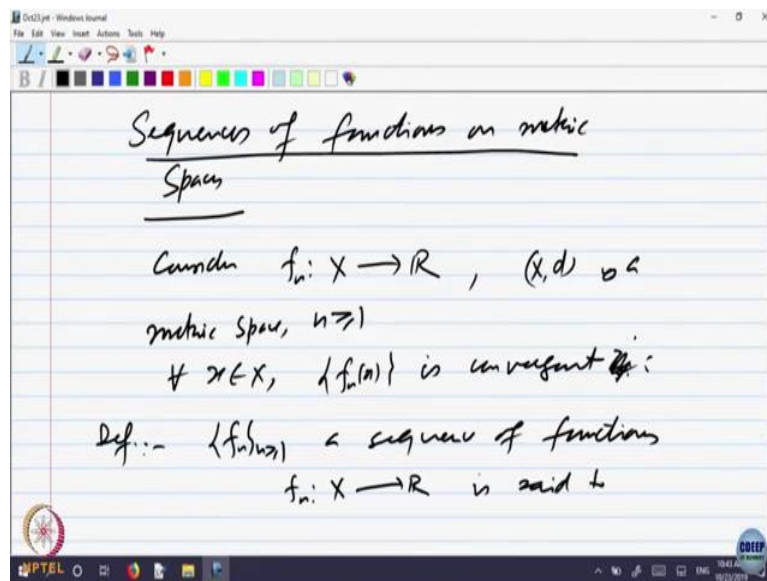 Oct23.jnt - Windows Journal
File Edit View Insert Actions Tools Help
B I
Sequences of functions on metric
Spaces
Consider fₙ: X → R , (X,d) is a
metric space, n≥1
∀ x∈X, {fₙ(x)} is convergent :
Def:- {fₙ}ₙ≥1 a sequence of functions
fₙ: X → R is said to
NPTEL
CDEEP
ENG
10/23/2019